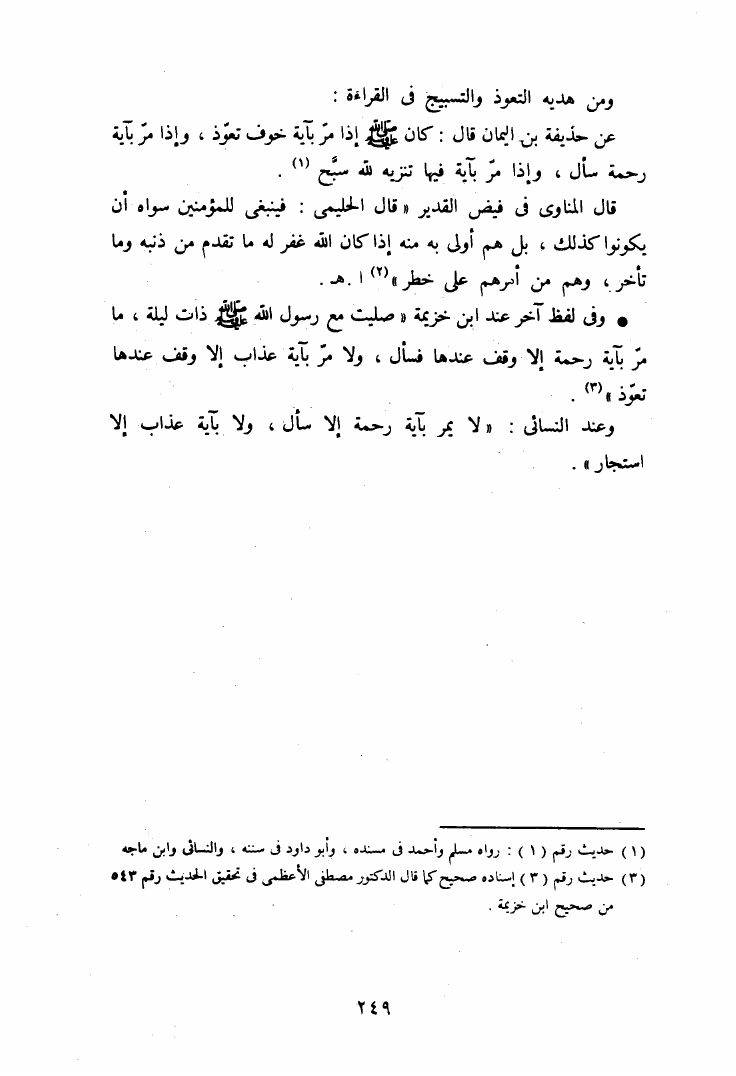 ومن هديه التعوذ والتسبيح فى القراءة :
عن حذيفة بن اليمان قال : كان ﷺ إذا مرّ بآية خوف تعوّذ ، وإذا مرّ بآية
رحمة سأل ، وإذا مرّ بآية فيها تنزيه لله سبَّح (١) .
قال المناوى فى فيض القدير « قال الحليمى : فينبغى للمؤمنين سواه أن
يكونوا كذلك ، بل هم أولى به منه إذا كان الله غفر له ما تقدم من ذنبه وما
تأخر ، وهم من أمرهم على خطر » (٢) ا . هـ .
● وفى لفظ آخر عند ابن خزيمة « صليت مع رسول الله ﷺ ذات ليلة ، ما
مرّ بآية رحمة إلا وقف عندها فسأل ، ولا مرّ بآية عذاب إلا وقف عندها
تعوّذ » (٣) .
وعند النسائى : « لا يمر بآية رحمة إلا سأل ، ولا بآية عذاب إلا
استجار » .
(١) حديث رقم ( ١ ) : رواه مسلم وأحمد فى مسنده ، وأبو داود فى سننه ، والنسائى وابن ماجه
(٣) حديث رقم ( ٣ ) إسناده صحيح كما قال الدكتور مصطفى الأعظمى فى تحقيق الحديث رقم ٥٤٣
من صحيح ابن خزيمة .
٢٤٩